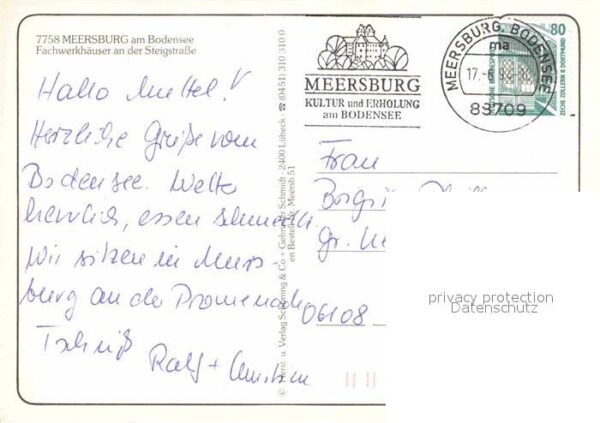 7758 MEERSBURG am Bodensee
Fachwerkhäuser an der Steigstraße
Hallo Muttel!
Herzliche Grüße vom
Bodensee. Wetter
herrlich, essen schmeckt.
Wir sitzen in Meers-
burg an der Promenade
Tschüß
Ralf +
Schöning & Co + Gebrüder Schmidt · 2400 Lübeck · ☎ (0451) 310 310 0
MEERSBURG
KULTUR und ERHOLUNG
am BODENSEE
MEERSBURG, BODENSEE
ma
88709
80
ZECHE ZOLLERN II DORTMUND
Frau
06108
privacy protection
Datenschutz